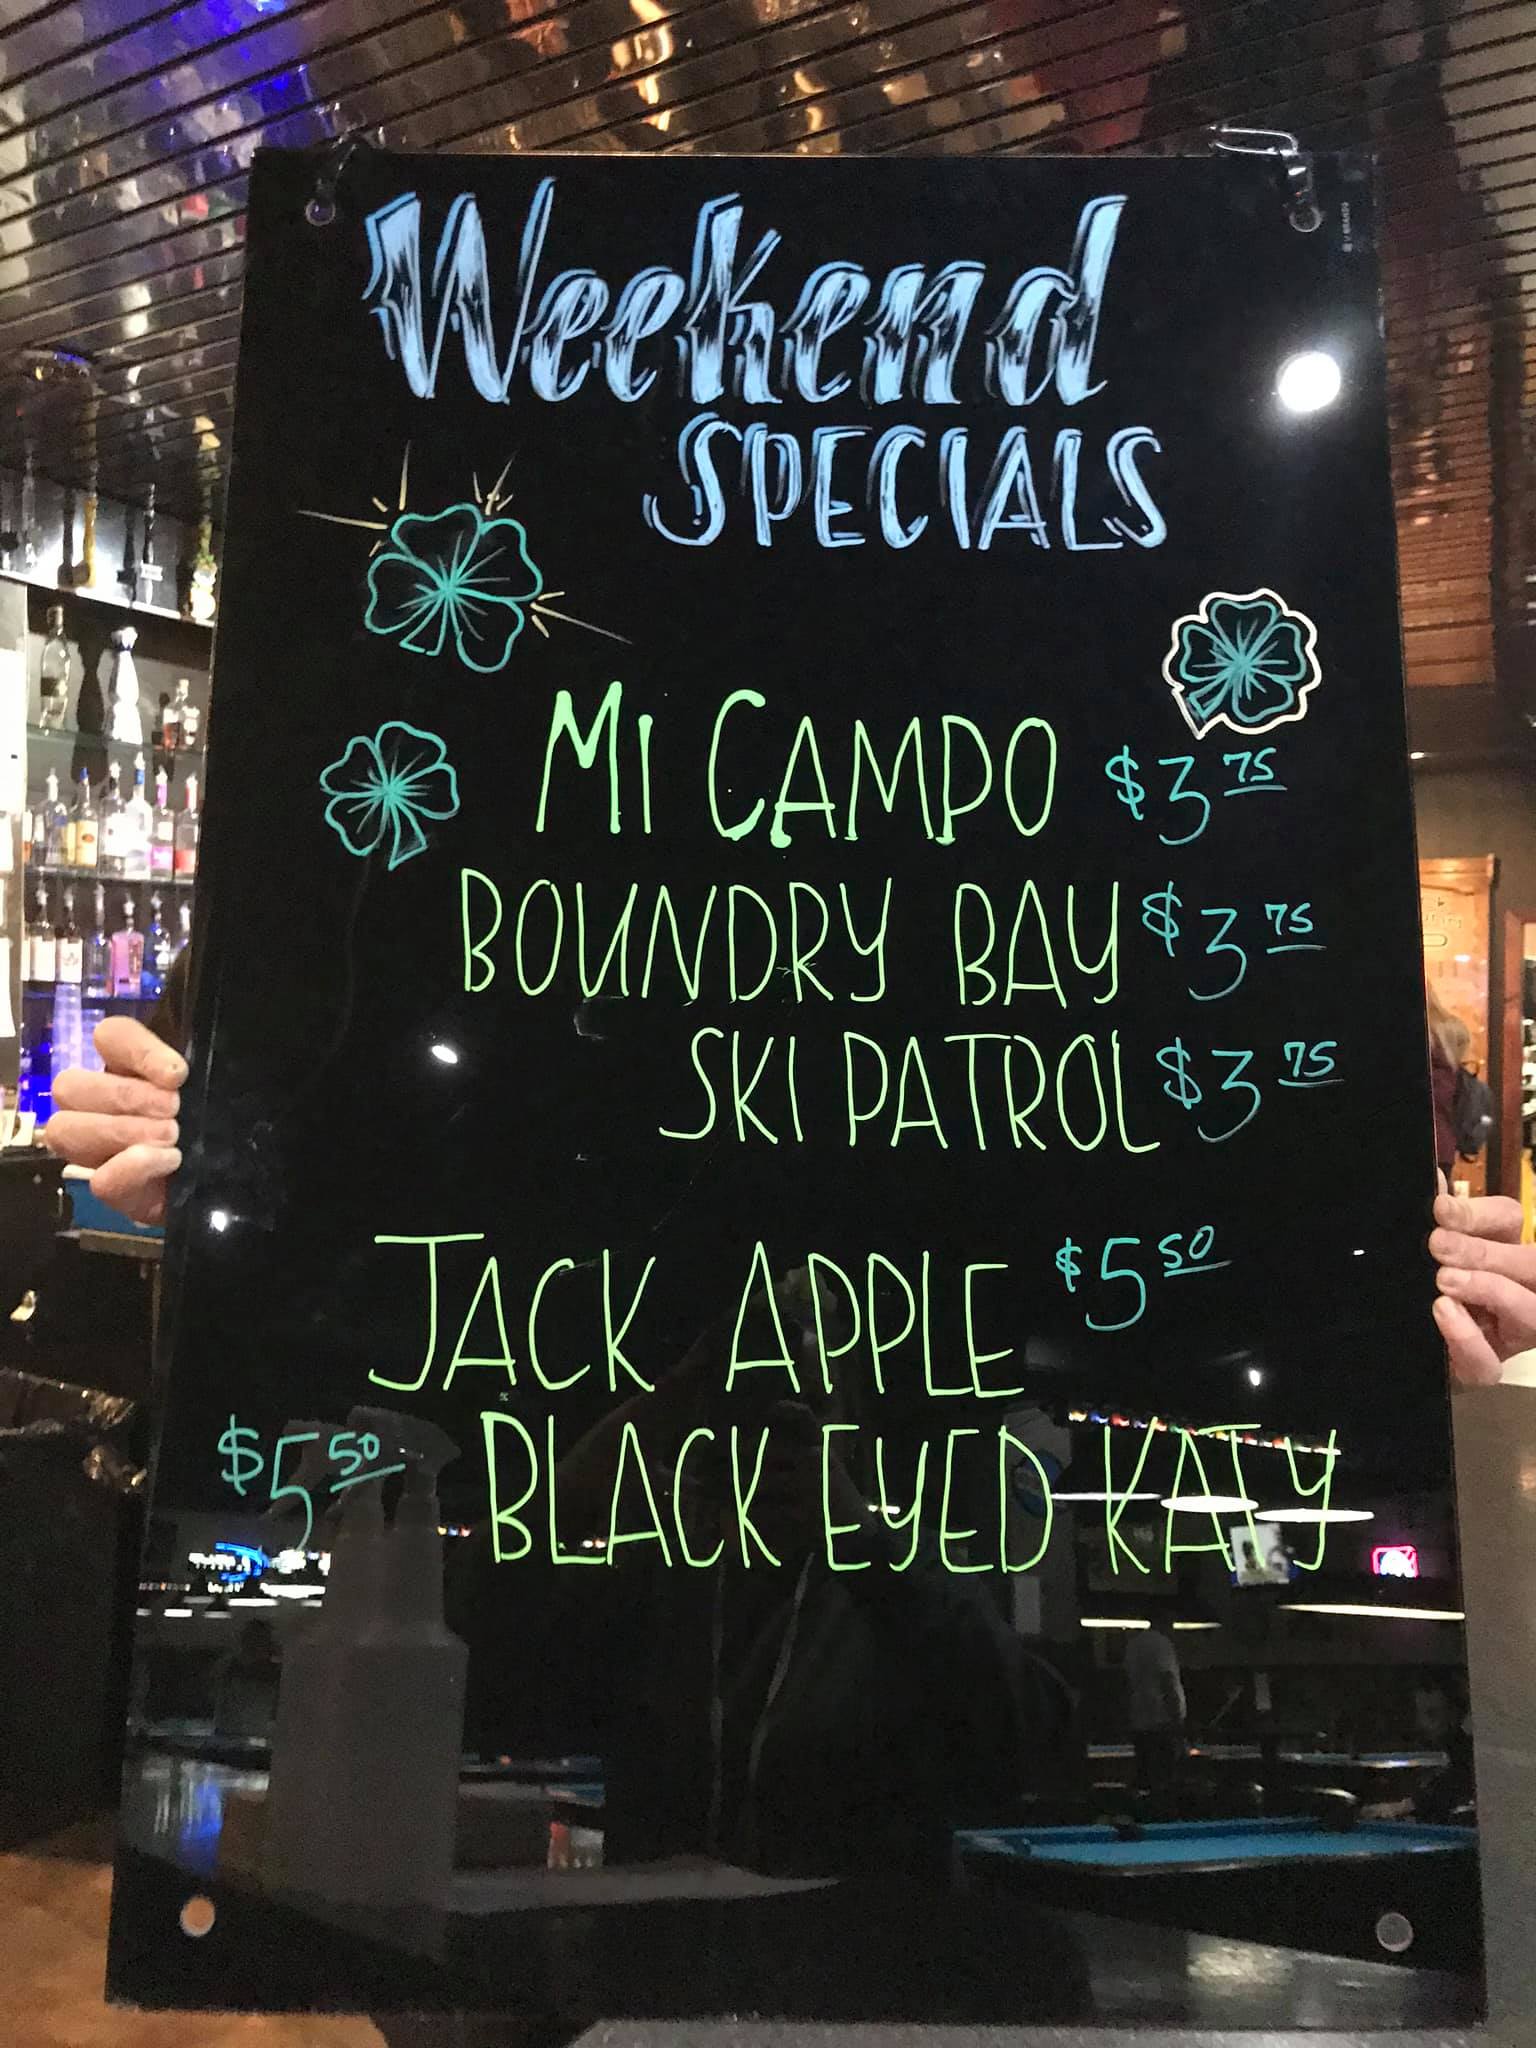 Weekend
SPECIALS
MI CAMPO $3 75
BOUNDRY BAY $3 75
SKI PATROL $3 75
JACK APPLE $5 50
$5 50 BLACK EYED KATY